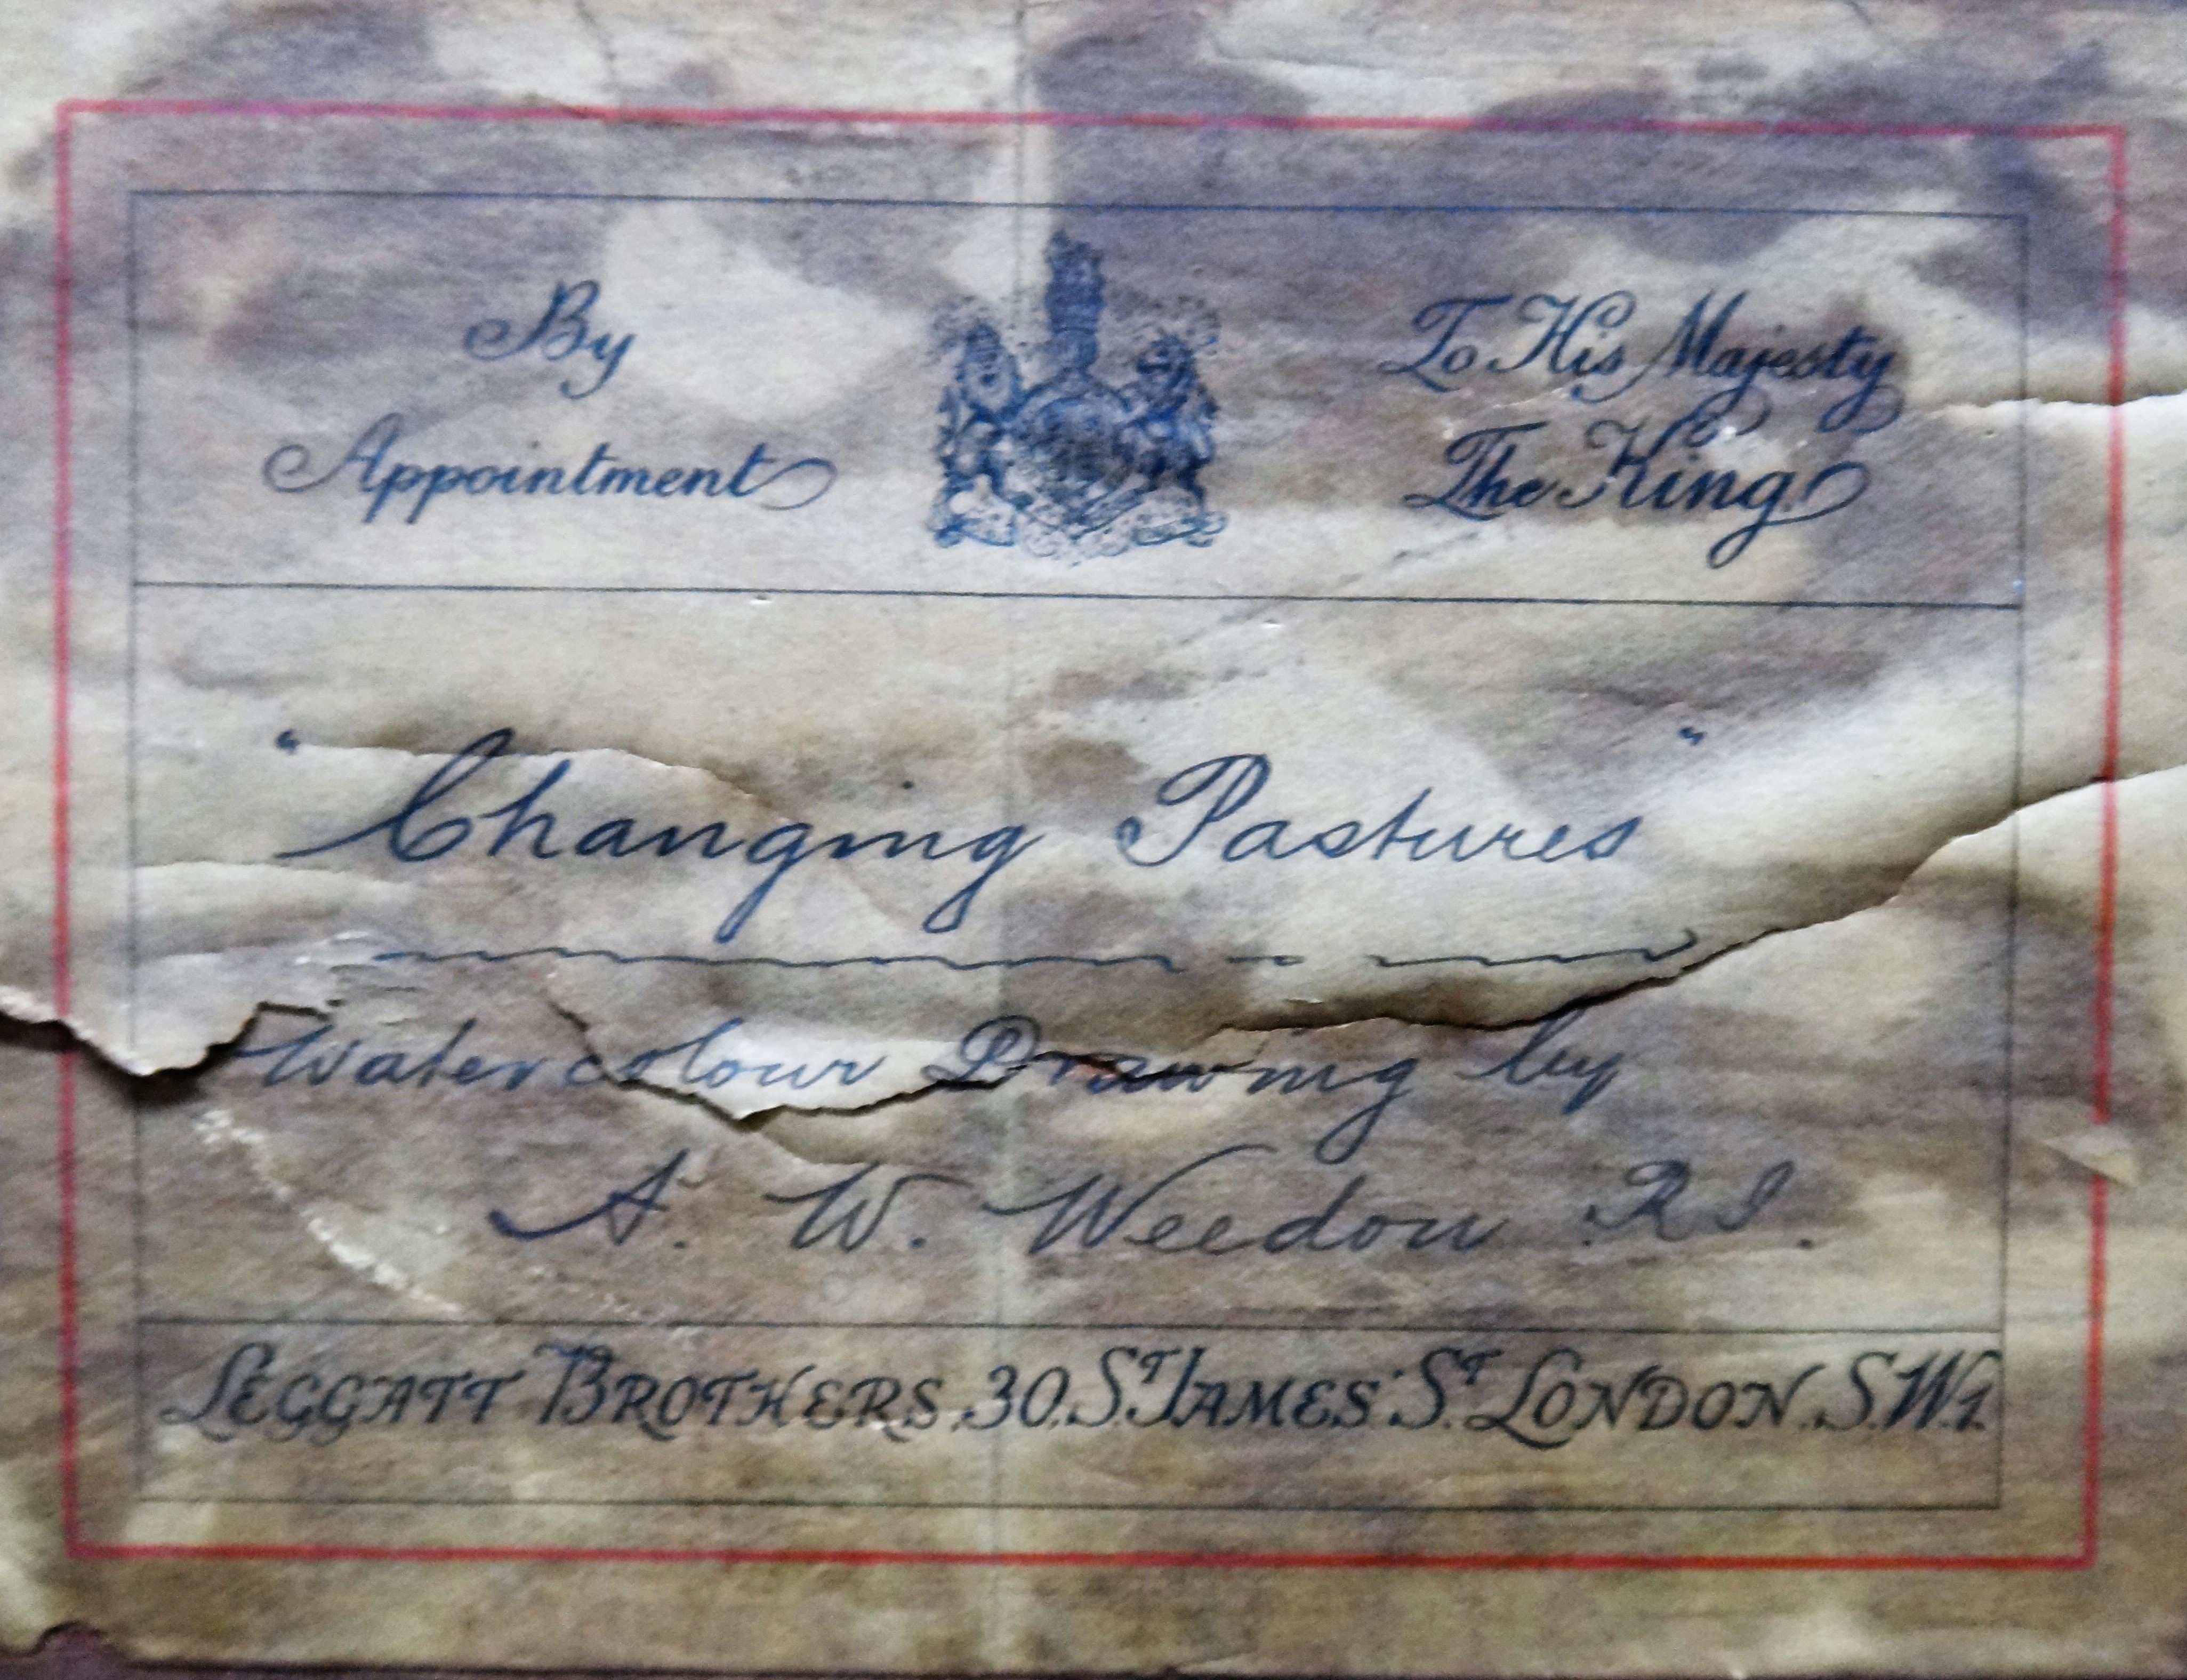 By
Appointment
To His Majesty
The King
"Changing Pastures"
Watercolour Drawing by
A. W. Weedon R.I.
LEGGATT BROTHERS, 30, ST JAMES' ST LONDON. S.W.1.